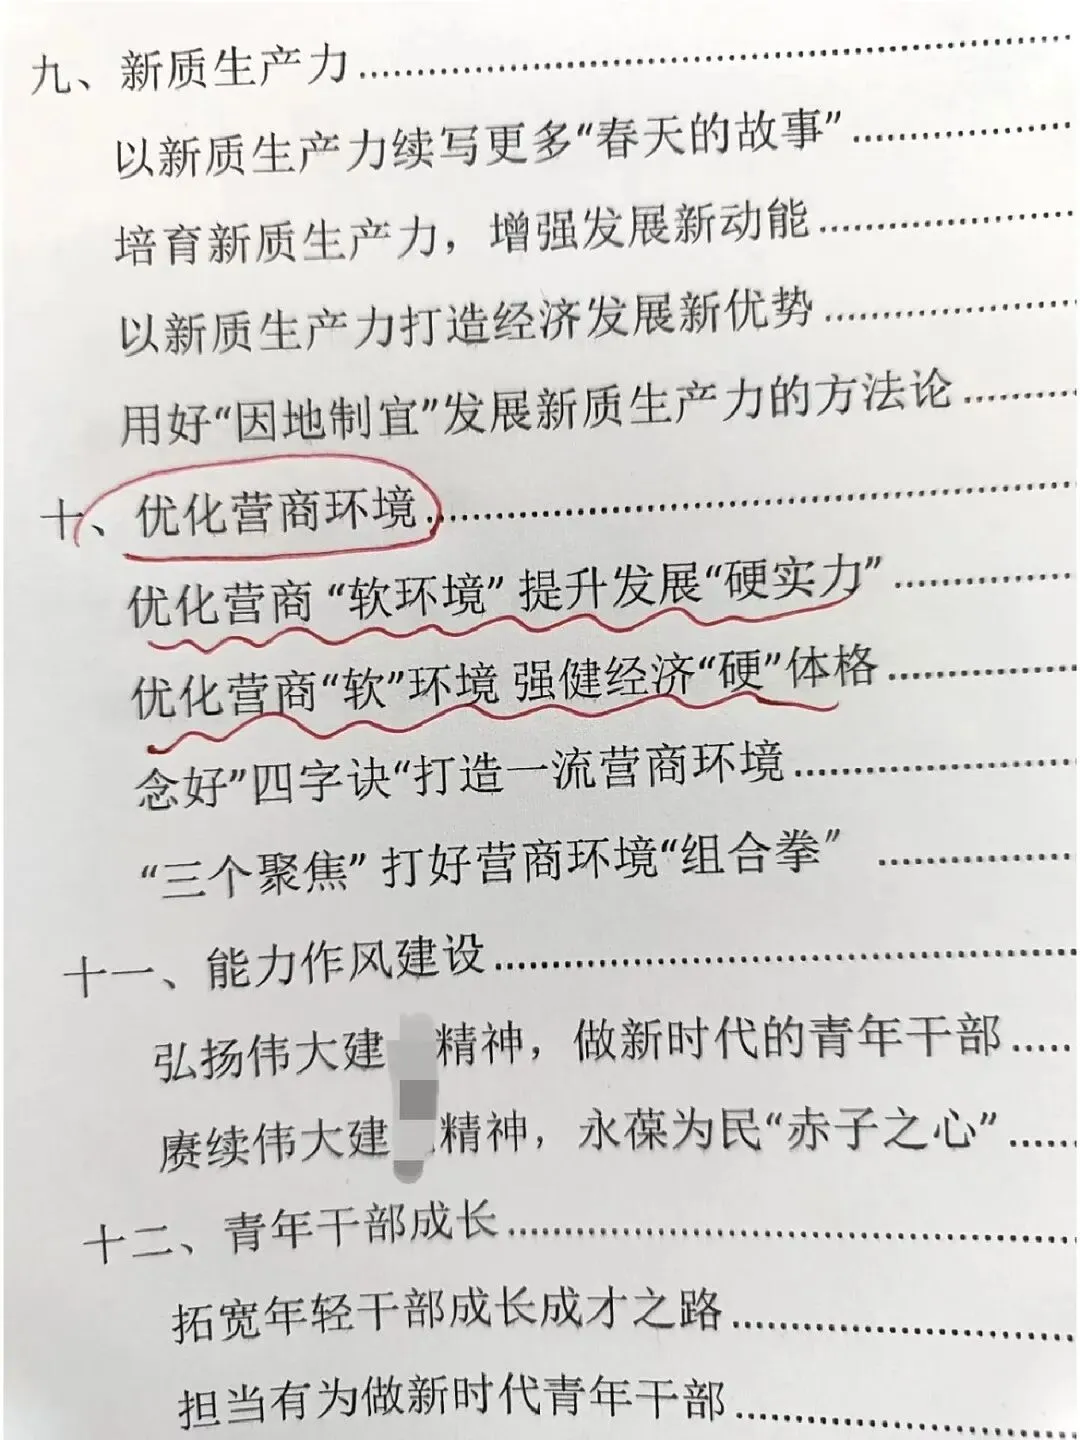 九、新质生产力........................................
以新质生产力续写更多“春天的故事”................
培育新质生产力，增强发展新动能....................
以新质生产力打造经济发展新优势....................
用好“因地制宜”发展新质生产力的方法论..........
十、优化营商环境........................................
优化营商 “软环境” 提升发展“硬实力”..............
优化营商“软”环境 强健经济“硬”体格..............
念好”四字诀“打造一流营商环境....................
“三个聚焦” 打好营商环境“组合拳” ................
十一、能力作风建设....................................
弘扬伟大建 精神，做新时代的青年干部.....
赓续伟大建 精神，永葆为民“赤子之心”.....
十二、青年干部成长....................................
拓宽年轻干部成长成才之路........................
担当有为做新时代青年干部........................